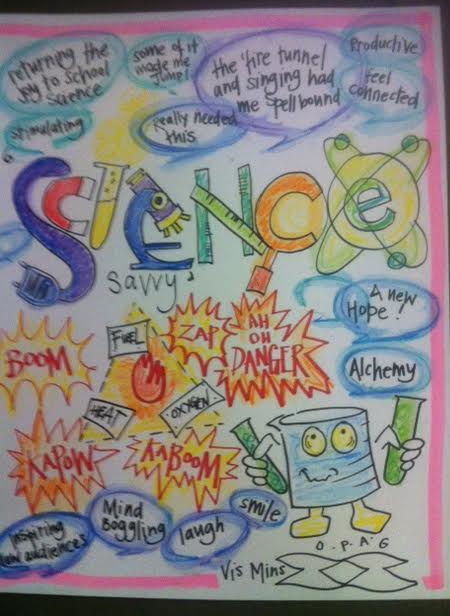 returning the
joy to school
science
some of it
made me
jump!
the 'fire tunnel
and singing had
me spellbound
Productive
feel
connected
stimulating
really needed
this
SCIENCE
savvy
A new
Hope!
Alchemy
BOOM
FUEL
ZAP
AH
OH
DANGER
HEAT
OXYGEN
KAPOW
KABOOM
inspiring
new audiences
Mind
Boggling
laugh
smile
O.P.A.G
Vis Mins